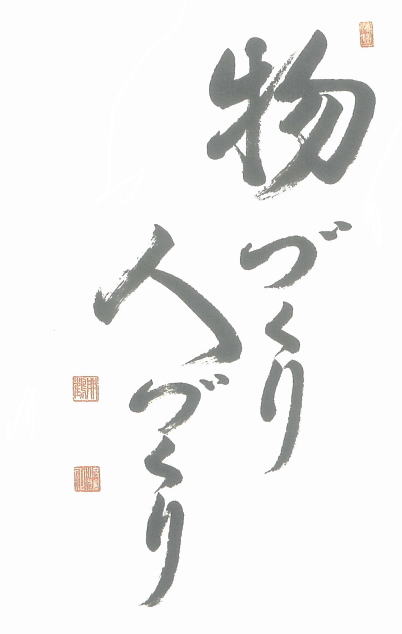 物づくり
人づくり